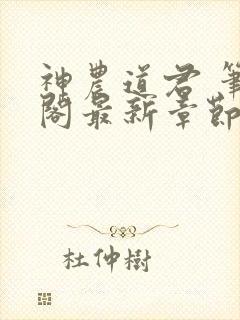 神農道君 筆
閣最新章節
杜仲樹